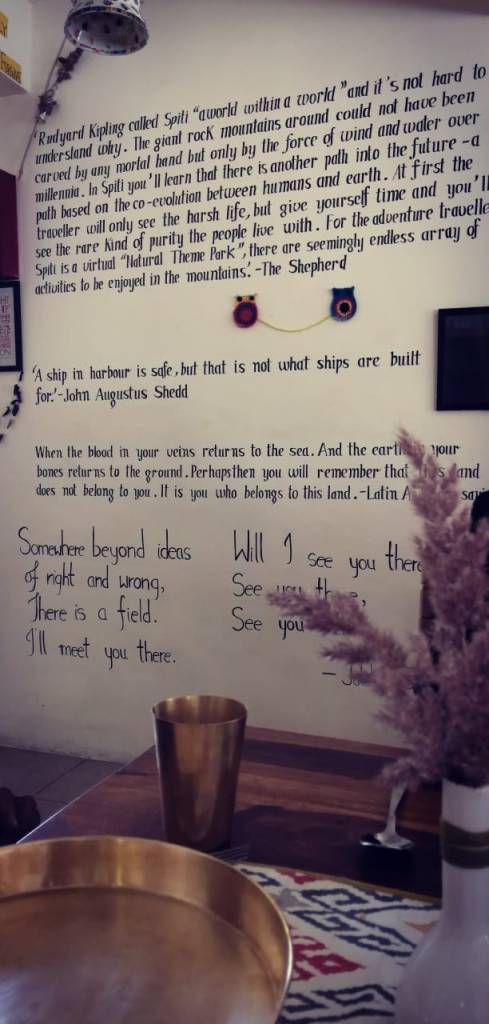 'Rudyard Kipling called Spiti "a world within a world" and it's not hard to
understand why. The giant rock mountains around could not have been
carved by any mortal hand but only by the force of wind and water over
millennia. In Spiti you'll learn that there is another path into the future - a
path based on the co-evolution between humans and earth. At first the
traveller will only see the harsh life, but give yourself time and you'll
see the rare kind of purity the people live with. For the adventure travelle
Spiti is a virtual "Natural Theme Park", there are seemingly endless array of
activities to be enjoyed in the mountains.' - The Shepherd
'A ship in harbour is safe, but that is not what ships are built
for.' - John Augustus Shedd
When the blood in your veins returns to the sea. And the earth your
bones returns to the ground. Perhaps then you will remember that land
does not belong to you. It is you who belongs to this land. - Latin
Somewhere beyond ideas
of right and wrong,
There is a field.
I'll meet you there.
Will I see you there
See you
See you